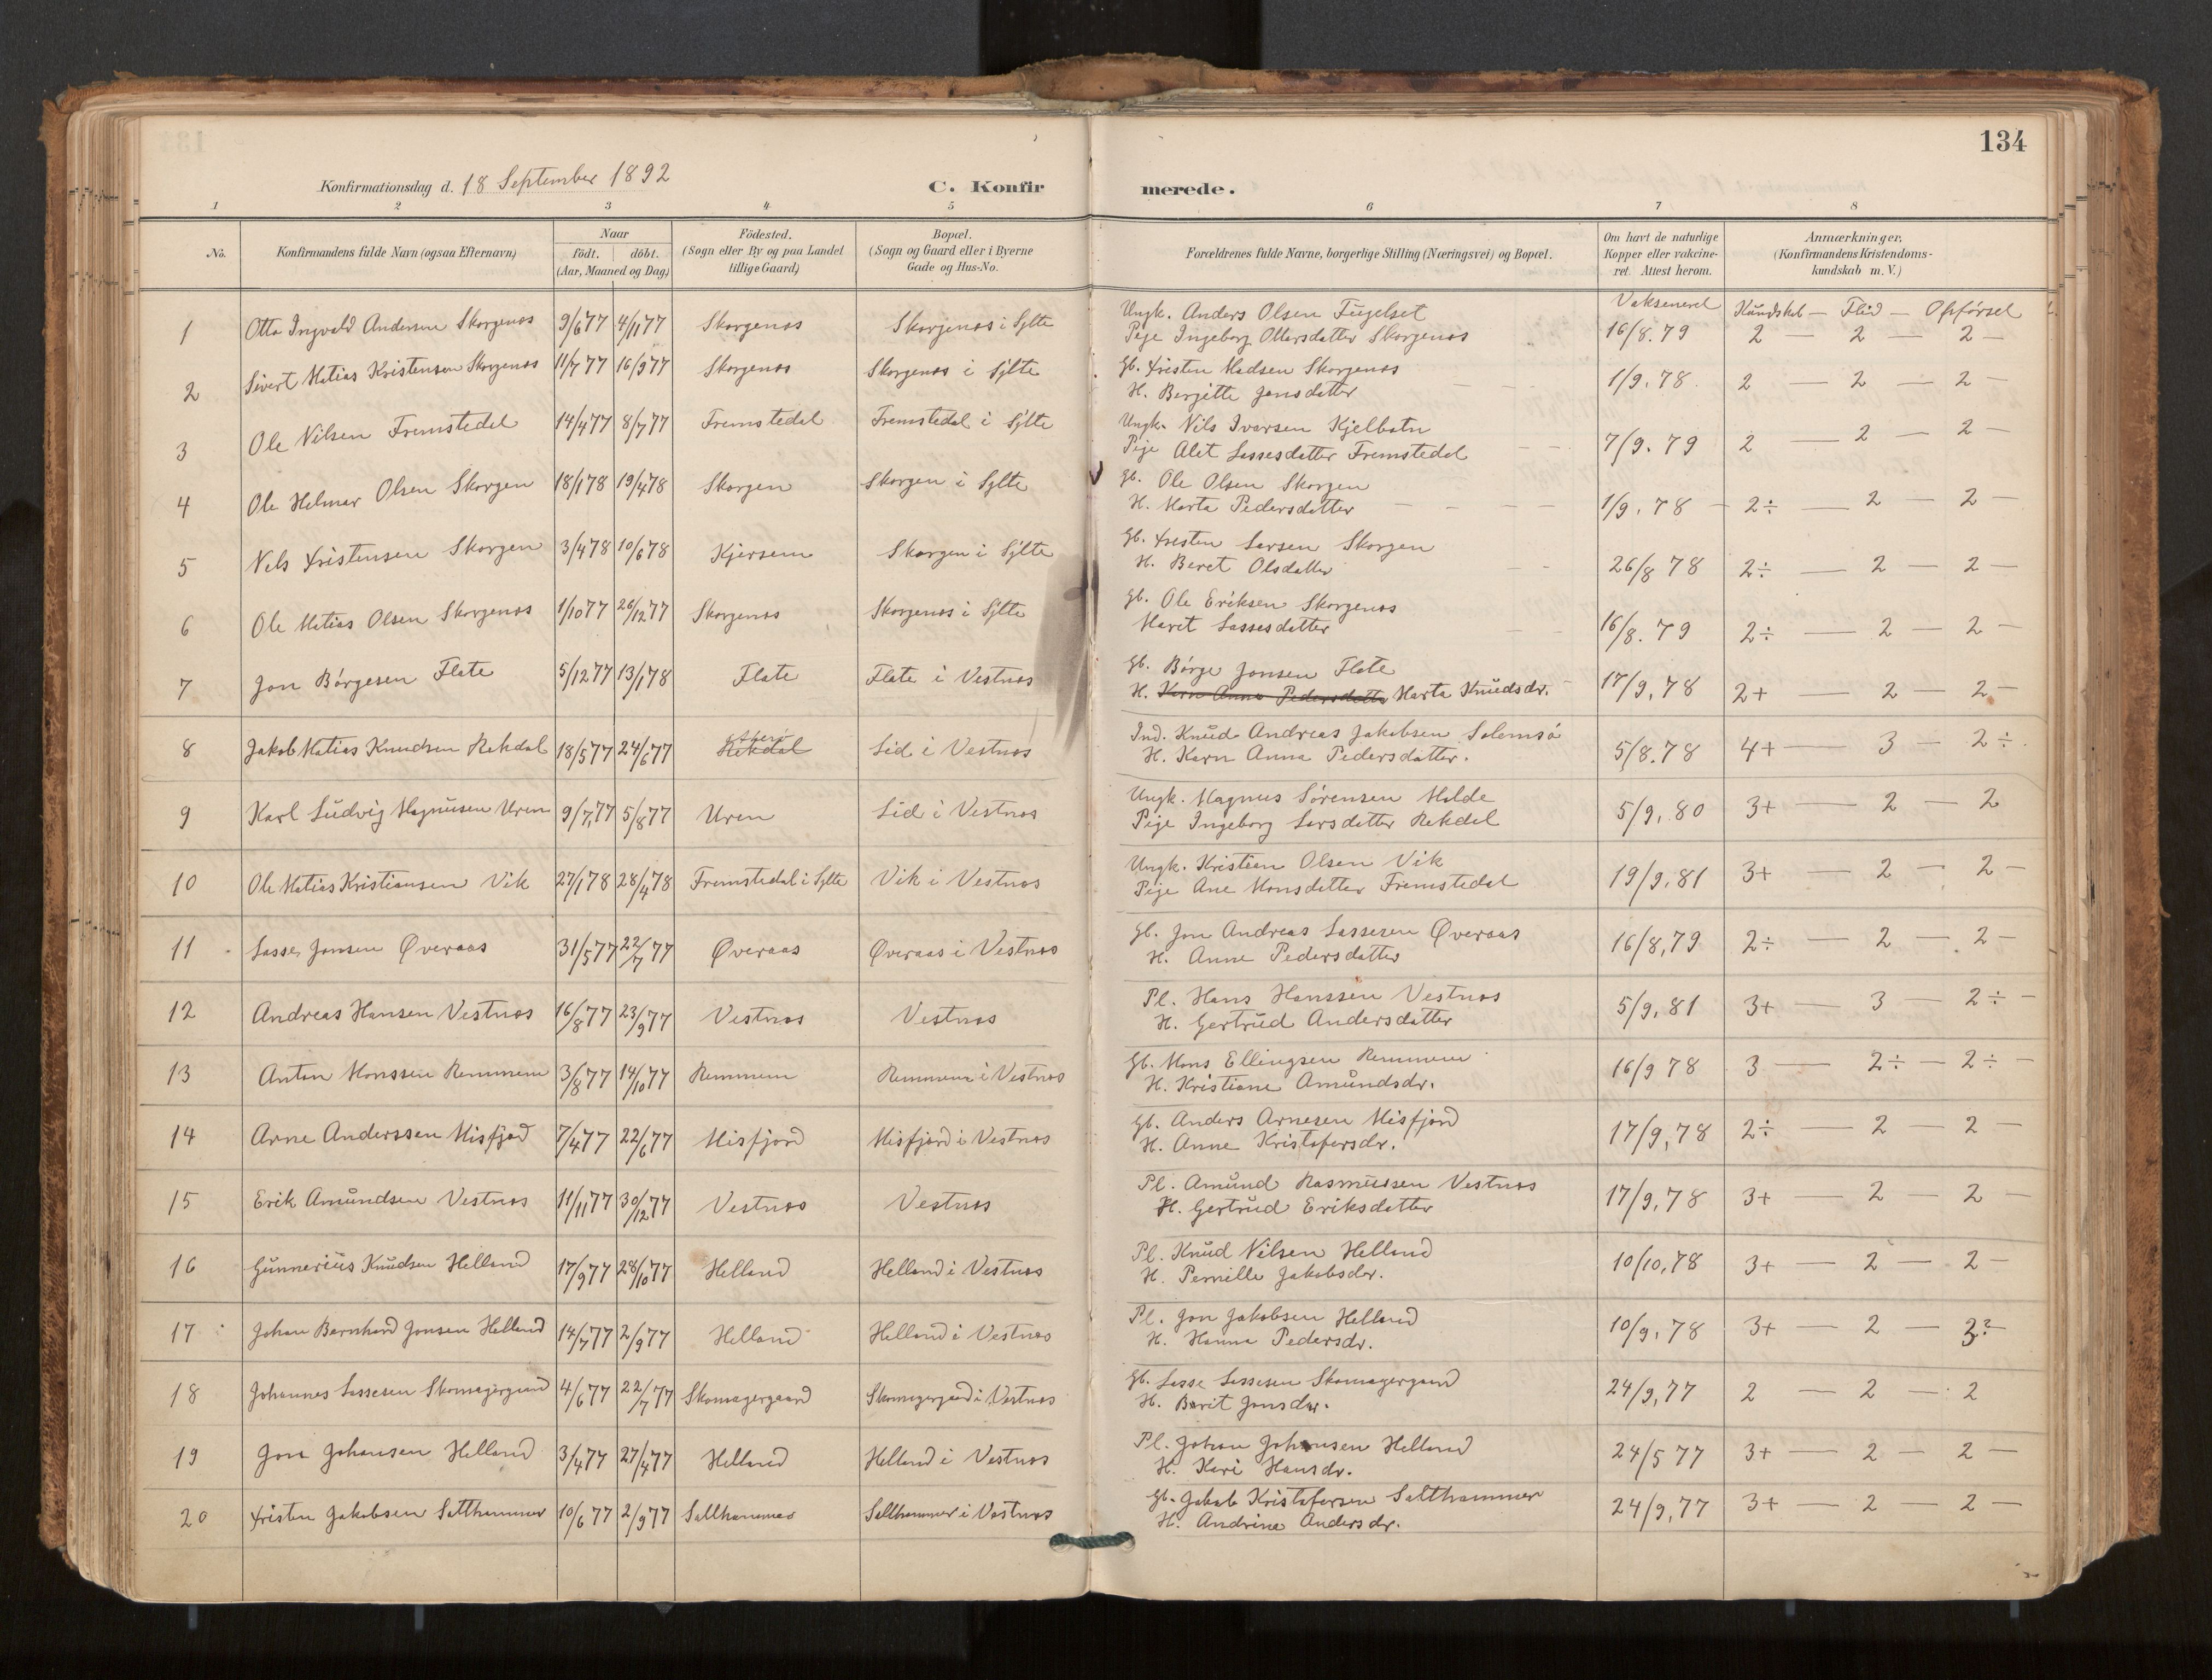 134
Konfirmationsdag d. 18 September 1892
C. Konfir
merede.
1 2 3 4 5 6 7 8
No.
Konfirmandens fulde Navn (ogsaa Efternavn)
Naar
födt. döbt.
(Aar, Maaned og Dag)
Födested.
(Sogn eller By og paa Landet
tillige Gaard)
Bopæl.
(Sogn og Gaard eller i Byerne
Gade og Hus-No.
Forældrenes fulde Navne, borgerlige Stilling (Næringsvei) og Bopæl.
Om havt de naturlige
Kopper eller vakcine-
ret. Attest herom.
Anmærkninger.
(Konfirmandens Kristendoms-
kundskab m. V.)
Vaksineret Kundskab — Flid — Opførsel
1 Otto Ingvald Andersen Skorgenes 9/6 77 4/11 77 Skorgenes Skorgenes i Sylte
Ungk. Anders Olsen Fugelset
Pige Ingeborg Ottersdatter Skorgenes 16/8. 79 2 — 2 — 2 —
2 Sivert Matias Kristensen Skorgenes 11/7 77 16/9 77 Skorgenes Skorgenes i Sylte
Gb. Kristen Madsen Skorgenes
H. Bergitte Jonsdatter 1/9. 78. 2 — 2 — 2 —
3 Ole Nilsen Fremstedal 14/4 77 8/7 77 Fremstedal Fremstedal i Sylte
Ungk. Nils Iversen Kjelbotn
Pige Alet Lassesdatter Fremstedal 7/9. 79 2 — 2 — 2 —
4 Ole Helmer Olsen Skorgen 18/1 78 19/4 78 Skorgen Skorgen i Sylte
Gb. Ole Olsen Skorgen
H. Marta Pedersdatter 1/9. 78 2÷ — 2 — 2 —
5 Nels Kristensen Skorgen 3/4 78 10/6 78 Kjersem Skorgen i Sylte
Gb. Kresten Larsen Skorgen
H. Beret Olsdatter 26/8 78 2÷ — 2 — 2 —
6 Ole Matias Olsen Skorgenes 1/10 77 26/12 77 Skorgenes Skorgenes i Sylte
Gb. Ole Eriksen Skorgenes
Maret Lassesdatter 16/8. 79 2÷ — 2 — 2 —
7 Jon Børgesen Flate 5/12 77 13/1 78 Flate Flate i Vestnes
Gb. Børge Jonsen Flate
H. Karn Anna Pedersdatter Marta Knudsdr. 17/9, 78 2+ — 2 — 2 —
8 Jakob Matias Knudsen Rekdal 18/5 77 24/6 77 Rekdal Lid i Vestnes
Ind. Knud Andreas Jakobsen Solemsø
H. Karn Anna Pedersdatter. 5/8. 78 4+ — 3 — 2÷.
9 Karl Ludvig Magnusen Uren 9/7, 77 5/8 77 Uren Lid i Vestnes
Ungk. Magnus Sørensen Molde
Pige Ingeborg Larsdatter Rekdal 5/9, 80 3+ — 2 — 2
10 Ole Matias Kristiansen Vik 27/1 78 28/4 78 Fremstedal i Sylte Vik i Vestnes
Ungk. Kristian Olsen Vik
Pige Ane Monsdatter Fremstedal 19/9. 81 3+ — 2 — 2 —
11 Lasse Jonsen Øveraas 31/5 77 22/7 77 Øveraas Øveraas i Vestnes
Gb. Jon Andreas Lassesen Øveraas
H. Anne Pedersdatter 16/8, 79 2÷ — 2 — 2 —
12 Andreas Hansen Vestnes 16/8 77 23/9 77 Vestnes Vestnes
Pl. Hans Hanssen Vestnes
H. Gertrud Andersdatter 5/9, 81 3+ — 3 — 2÷ —
13 Anton Monssen Remmem 3/8 77 14/10 77 Remmem Remmem i Vestnes
Gb. Mons Ellingsen Remmem
H. Kristiane Amundsdr. 16/9 78 3 — 2÷ — 2÷ —
14 Arne Anderssen Misfjord 7/4 77 22/6 77 Misfjord Misfjord i Vestnes
Gb. Anders Arnesen Misfjord
H. Anne Kristofersdr. 17/9, 78 2÷ — 2 — 2 —
15 Erik Amundsen Vestnes 11/11 77 30/12 77 Vestnes Vestnes
Pl. Amund Rasmussen Vestnes
H. Gertrud Eriksdatter 17/9, 78 3+ — 2 — 2 —
16 Gunnerius Knudsen Helland 17/9 77 28/10 77 Helland Helland i Vestnes
Pl. Knud Nilsen Helland
H. Pernille Jakobsdr. 10/10, 78 3+ — 2 — 2 —
17 Johan Bernhard Jonsen Helland 14/7 77 2/9 77 Helland Helland i Vestnes
Pl. Jon Jakobsen Helland
H. Hanna Pedersdr. 10/9, 78 3+ — 2 —
18 Johannes Lassesen Skomagergaard 4/6 77 22/7 77 Skomagergaard Skomagergaard i Vestnes
Gb. Lasse Lassesen Skomagergaard
H. Berit Jonsdr. 24/9, 77 2 — 2 — 2
19 Jon Johansen Helland 3/4 77 27/4 77 Helland Helland i Vestnes
Pl. Johan Johansen Helland
H. Kari Hansdr. 24/5 77 3+ — 2 — 2 —
20 Kristen Jakobsen Salthammer 10/6 77 2/9 77 Salthammer Salthammer i Vestnes
Gb. Jakob Kristofersen Salthammer
H. Andrine Andersdr. 24/9, 77 3+ — 2 — 2 —